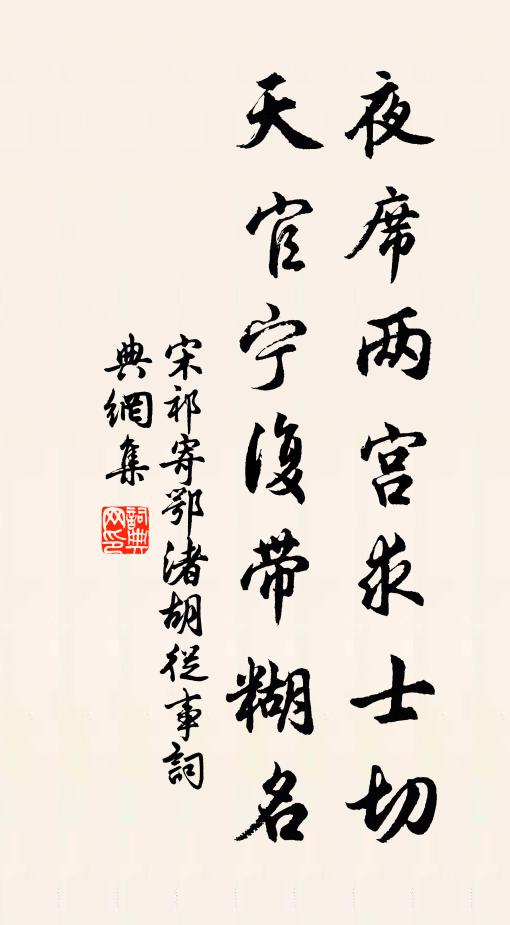 夜席两宫求士切
天官宁復带糊名
宋祁寄鄂渚胡從事詞
典網集
詞典网印